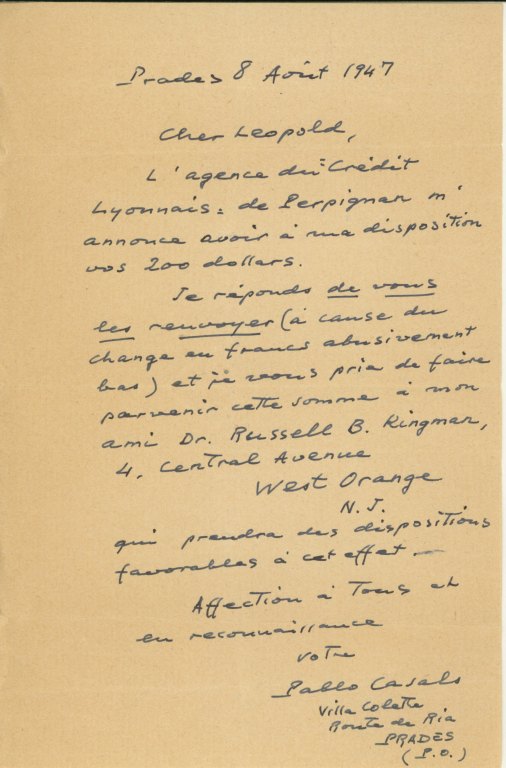 Prades 8 Août 1947
Cher Leopold,
L'agence du "Crédit
Lyonnais" de Perpignan m'
annonce avoir à ma disposition
vos 200 dollars.
Je réponds de vous
les renvoyer (à cause du
change en francs abusivement
bas) et je vous prie de faire
parvenir cette somme à mon
ami Dr. Russell B. Kingman,
4, Central Avenue
West Orange
N.J.
qui prendra des dispositions
favorables à cet effet. —
Affection à Tous et
en reconnaissance
votre
Pablo Casals
Villa Colette
Route de Ria
PRADES
(P.O.)